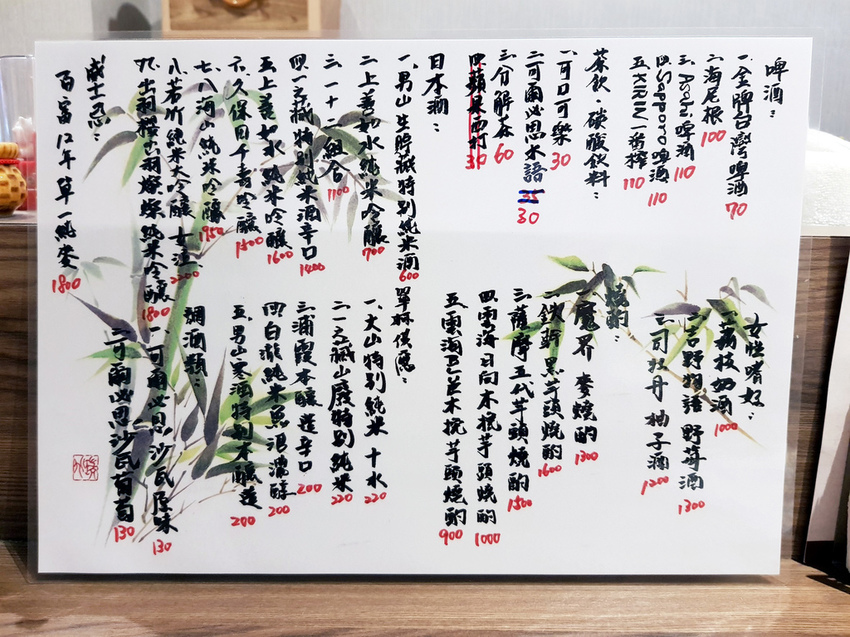 啤酒：
一.金牌台灣啤酒 70
二.海尼根 100
三.Asahi啤酒 110
四.Sapporo啤酒 110
五.KIRIN一番搾 110
茶飲．碳酸飲料：
一.可口可樂 30
二.可爾必思水語 35 30
三.分解茶 60
四.蘋果西打 30
日本酒：
一.男山生貯藏特別純米酒 600
二.上善如水純米吟釀 700
三.一十二組合 1100
四.一之藏特別純米酒辛口 1400
五.上善如水純米吟釀 1600
六.久保田千壽吟釀 1500
七.八海山純米吟釀 1950
八.若竹純米大吟釀 女泣 2200
九.出羽櫻出羽燦燦純米吟釀 1800
威士忌：
百富12年單一純麥 1800
女性嗜好：
一.荔枝奶酒 1000
二.吉野物語 野莓酒 1300
三.司牡丹 柚子酒 1200
燒酌：
一.魔界 麥燒酌 1300
二.鉄斬 黑芋頭燒酌 1600
三.薩摩五代芋頭燒酌 1500
四.雲海日向木挽芋頭燒酌 1000
五.雲海BLUE木挽芋頭燒酌 900
單杯供應：
一.大山特別純米 十水 220
二.一之藏山廢特別純米 220
三.浦霞本釀造辛口 200
四.白瀧純米魚沼濃醇 200
五.男山寒酒特別本釀造 200
調酒類：
一.可爾必思沙瓦原味 130
二.可爾必思沙瓦葡萄 130